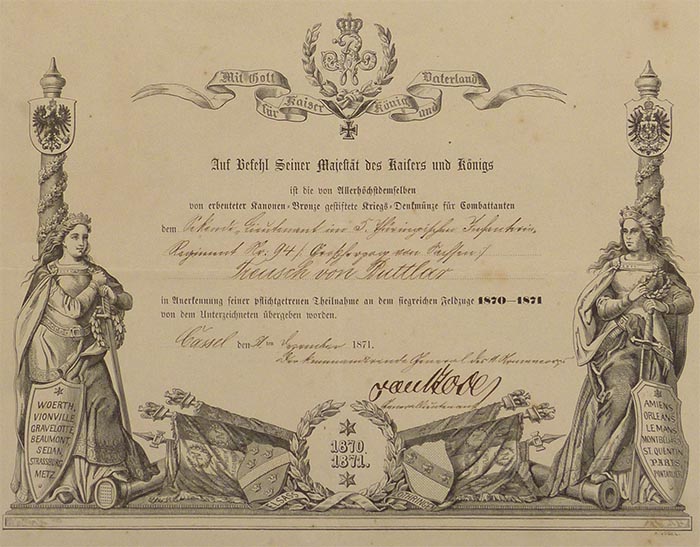 Mit Gott für Kaiser König und Vaterland
Auf Befehl Seiner Majestät des Kaisers und Königs
ist die von Allerhöchstdemselben
von erbeuteter Kanonen-Bronze gestiftete Kriegs-Denkmünze für Combattanten
dem Sekonde-Lieutenant im 5. Thüringischen Infanterie
Regiment Nr. 94 (Großherzog von Sachsen)
Treusch von Buttlar
in Anerkennung seiner pflichtgetreuen Theilnahme an dem siegreichen Feldzuge 1870—1871
von dem Unterzeichneten übergeben worden.
Cassel den ten Dezember 1871.
Der kommandirende General des Armeecorps
Generallieutenant
WOERTH,
VIONVILLE
GRAVELOTTE
BEAUMONT,
SEDAN,
STRASSBURG
METZ
1870.
1871.
ELSASS
LOTHRINGEN
AMIENS
ORLEANS
LE MANS
MONTBELIARD
ST. QUENTIN
PARIS
PONTARLIER